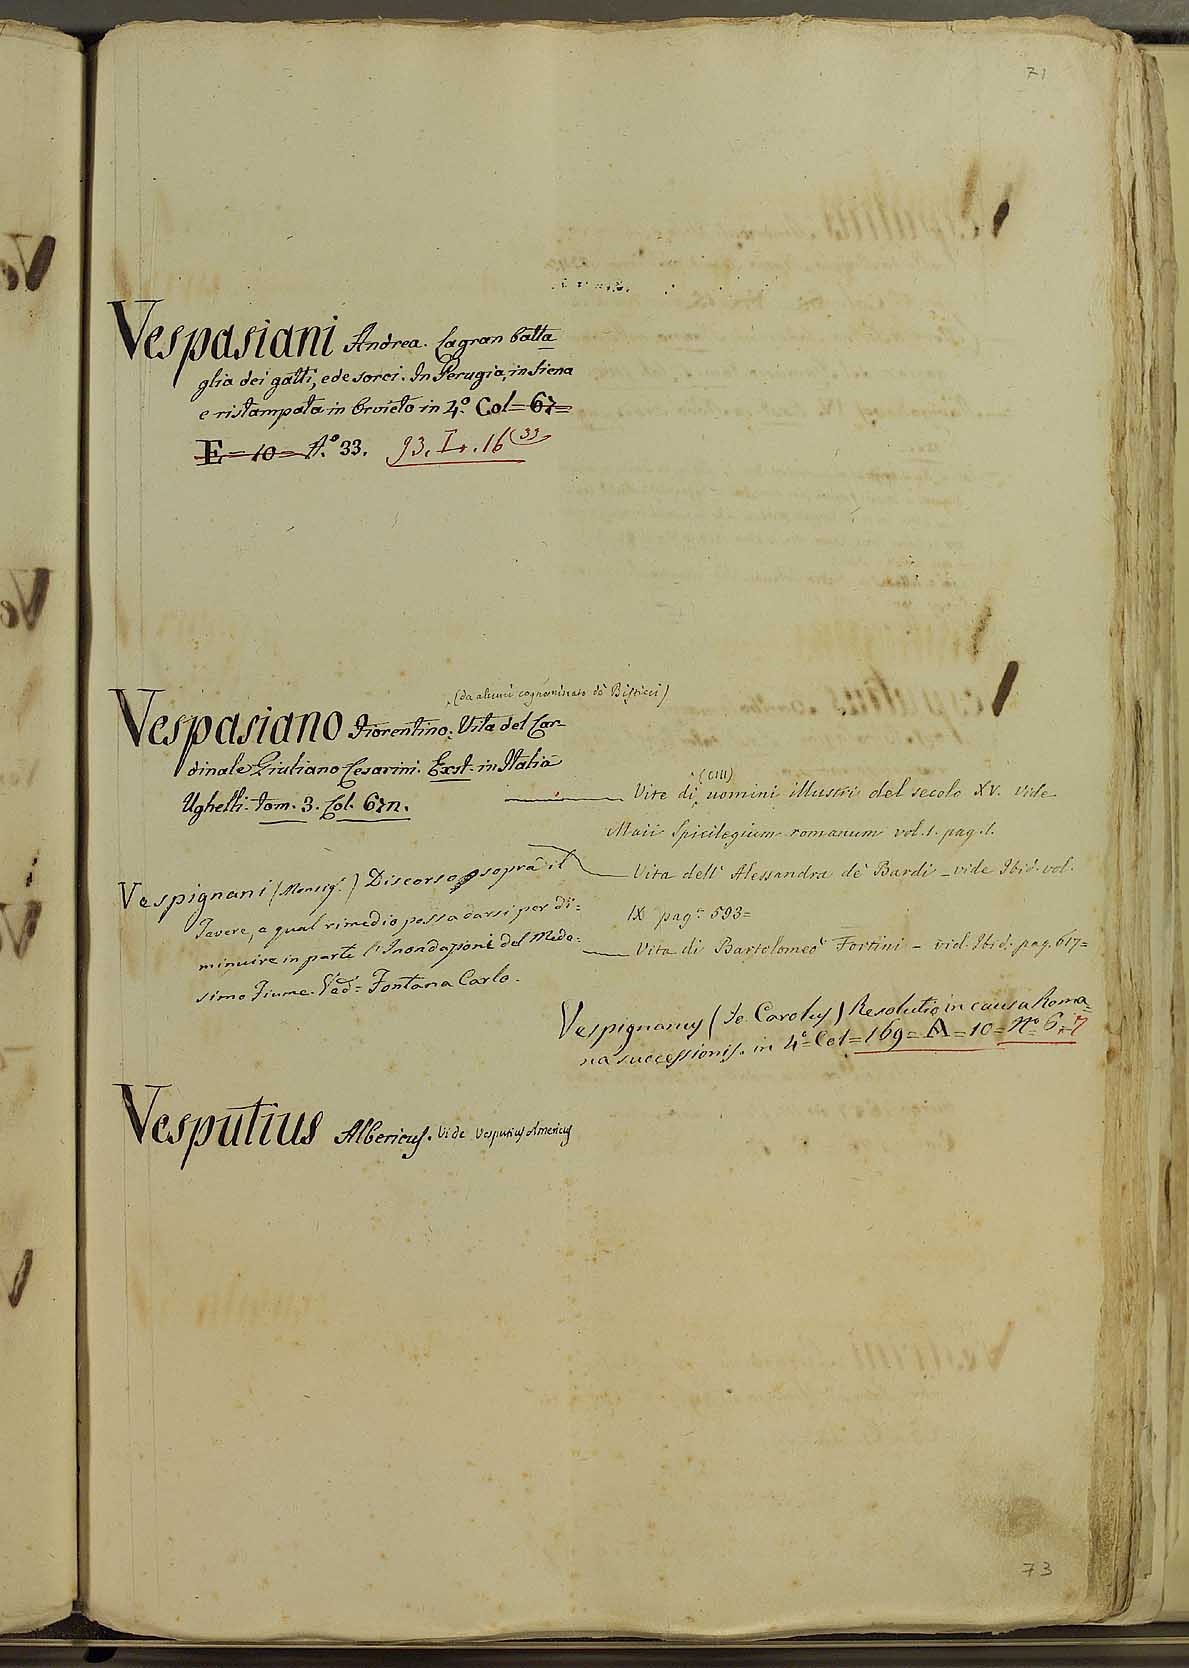 71
Vespasiani Andrea. La gran batta
glia dei gatti, e de sorci. In Perugia, in Siena
e ristampata in Orvieto in 4.º Col=67=
E=10= N.º 33. 93. L. 16 (33
(da alcuni cognominato de' Bisticci)
Vespasiano Fiorentino. Vita del Car-
dinale Giuliano Cesarini. Exst. in Italia
Ughelli. tom. 3. Col. 671.
(CIII)
Vite di uomini illustri del secolo XV. vide
Maii Spicilegium romanum vol. 1. pag. 1.
Vita dell' Alessandra de' Bardi - vide Ibid. vol.
IX pag. 593=
Vita di Bartolomeo Fortini - vid. Ibid. pag. 617=
Vespignani (Monsig.) Discorso sopra il
Tevere, e qual rimedio possa darsi per di=
minuire in parte l'Inondazioni del Mede=
simo Fiume. Ved= Fontana Carlo.
Vespignanus (Jo. Carolus) Resolutio in causa Roma=
na successionis. in 4º= Col=169=A=10=Nº 6.7
Vesputius Albericus. vide Vesputius Americus
73